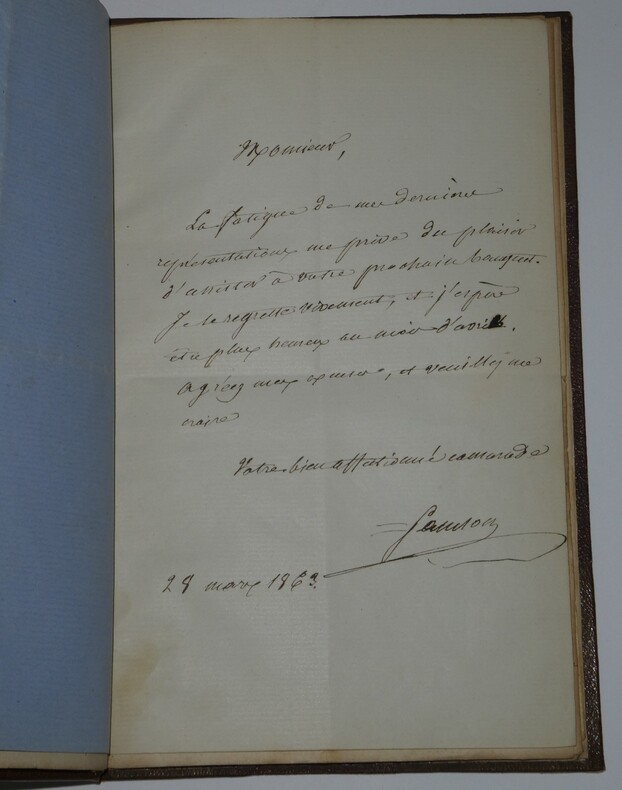 Monsieur,
La fatigue de mes dernières
représentations me prive du plaisir
d'assister à votre prochain banquet.
Je le regrette vivement, et j'espère
être plus heureux au mois d'avril.
Agréez mes excuses, et veuillez me
croire
Votre bien affectionné camarade
Samson
28 mars 1863.